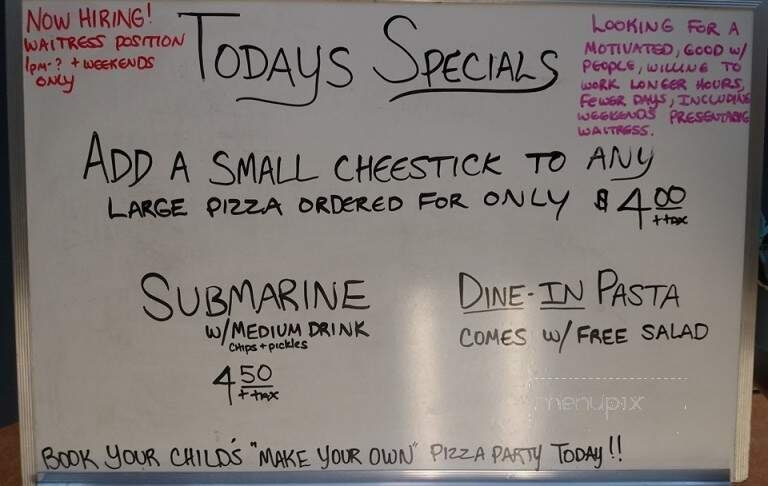 NOW HIRING!
WAITRESS POSITION
1PM-? + WEEKENDS
ONLY
TODAYS SPECIALS
LOOKING FOR A
MOTIVATED, GOOD W/
PEOPLE, WILLING TO
WORK LONGER HOURS,
FEWER DAYS, INCLUDING
WEEKENDS PRESENTABLE
WAITRESS.
ADD A SMALL CHEESTICK TO ANY
LARGE PIZZA ORDERED FOR ONLY $4.00
+ tax
SUBMARINE
W/MEDIUM DRINK
CHIPS + PICKLES
4 50
+ tax
DINE-IN PASTA
COMES W/ FREE SALAD
menupix
BOOK YOUR CHILD'S "MAKE YOUR OWN" PIZZA PARTY TODAY!!